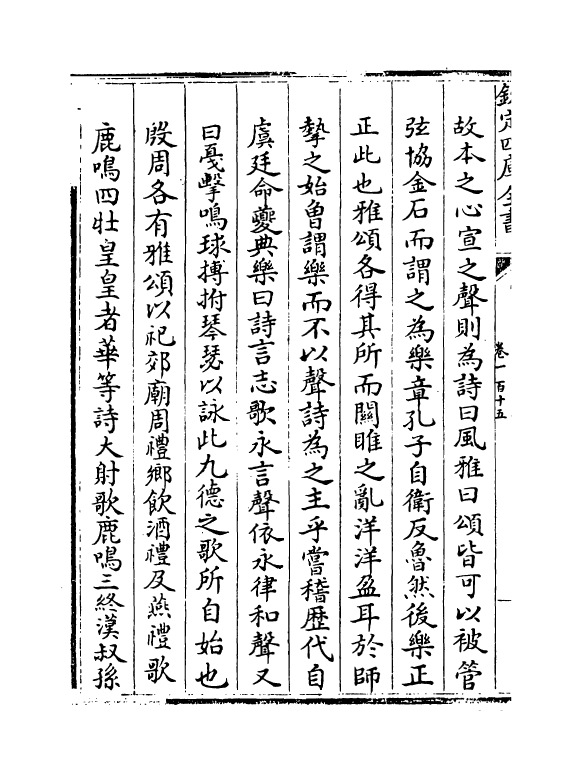 欽定四庫全書
卷一百十五
故本之心宣之聲則為詩曰風雅曰頌皆可以被管
弦協金石而謂之為樂章孔子自衛反魯然後樂正
正此也雅頌各得其所而關睢之亂洋洋盈耳於師
摯之始曾謂樂而不以聲詩為之主乎嘗稽歴代自
虞廷命夔典樂曰詩言志歌永言聲依永律和聲又
曰戞擊鳴球搏拊琴瑟以詠此九德之歌所自始也
殷周各有雅頌以祀郊廟周禮鄉飲酒禮及燕禮歌
鹿鳴四牡皇皇者華等詩大射歌鹿鳴三終漢叔孫